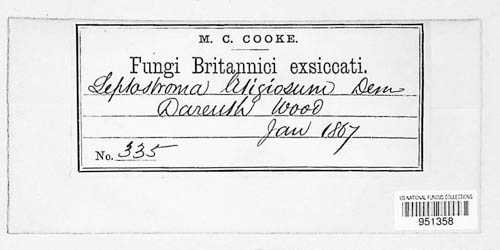 M. C. COOKE.
Fungi Britannici exsiccati.
Leptostroma litigiosum Desm
Darenth Wood
Jan 1867
No. 335
US NATIONAL FUNGUS COLLECTIONS
951358